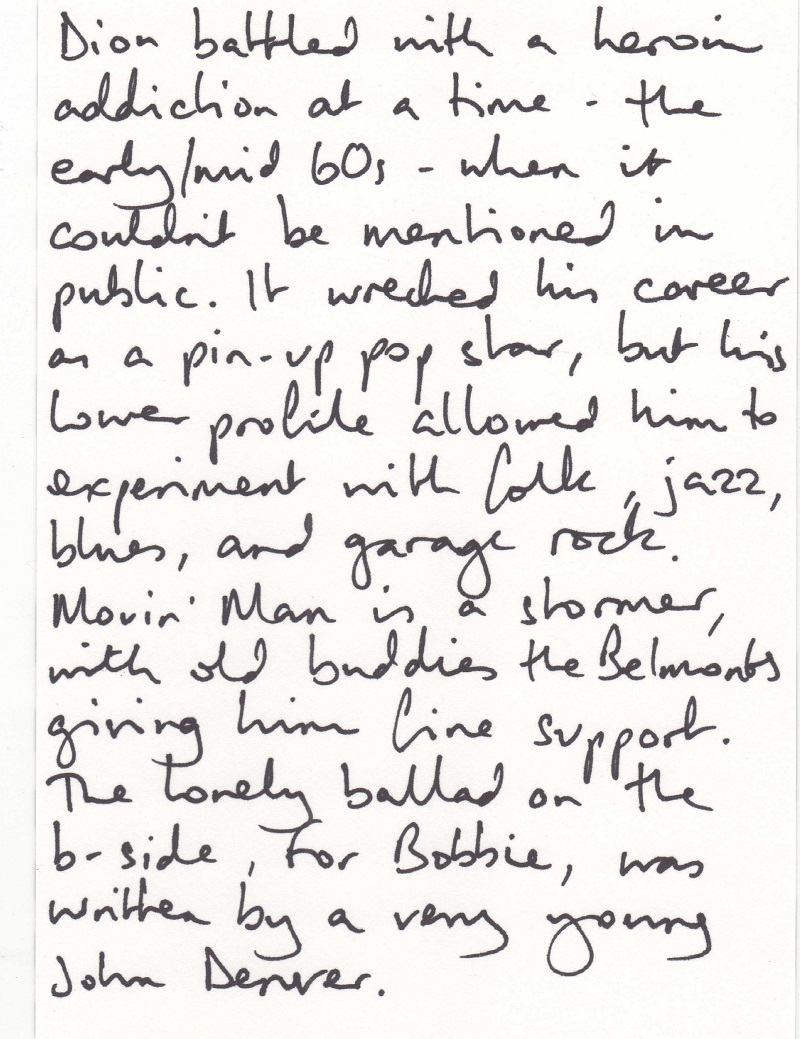 Dion battled with a heroin
addiction at a time - the
early/mid 60s - when it
couldn't be mentioned in
public. It wrecked his career
as a pin-up pop star, but his
lower profile allowed him to
experiment with folk, jazz,
blues, and garage rock.
Movin' Man is a stormer,
with old buddies the Belmonts
giving him fine support.
The lonely ballad on the
b-side, For Bobbie, was
written by a very young
John Denver.